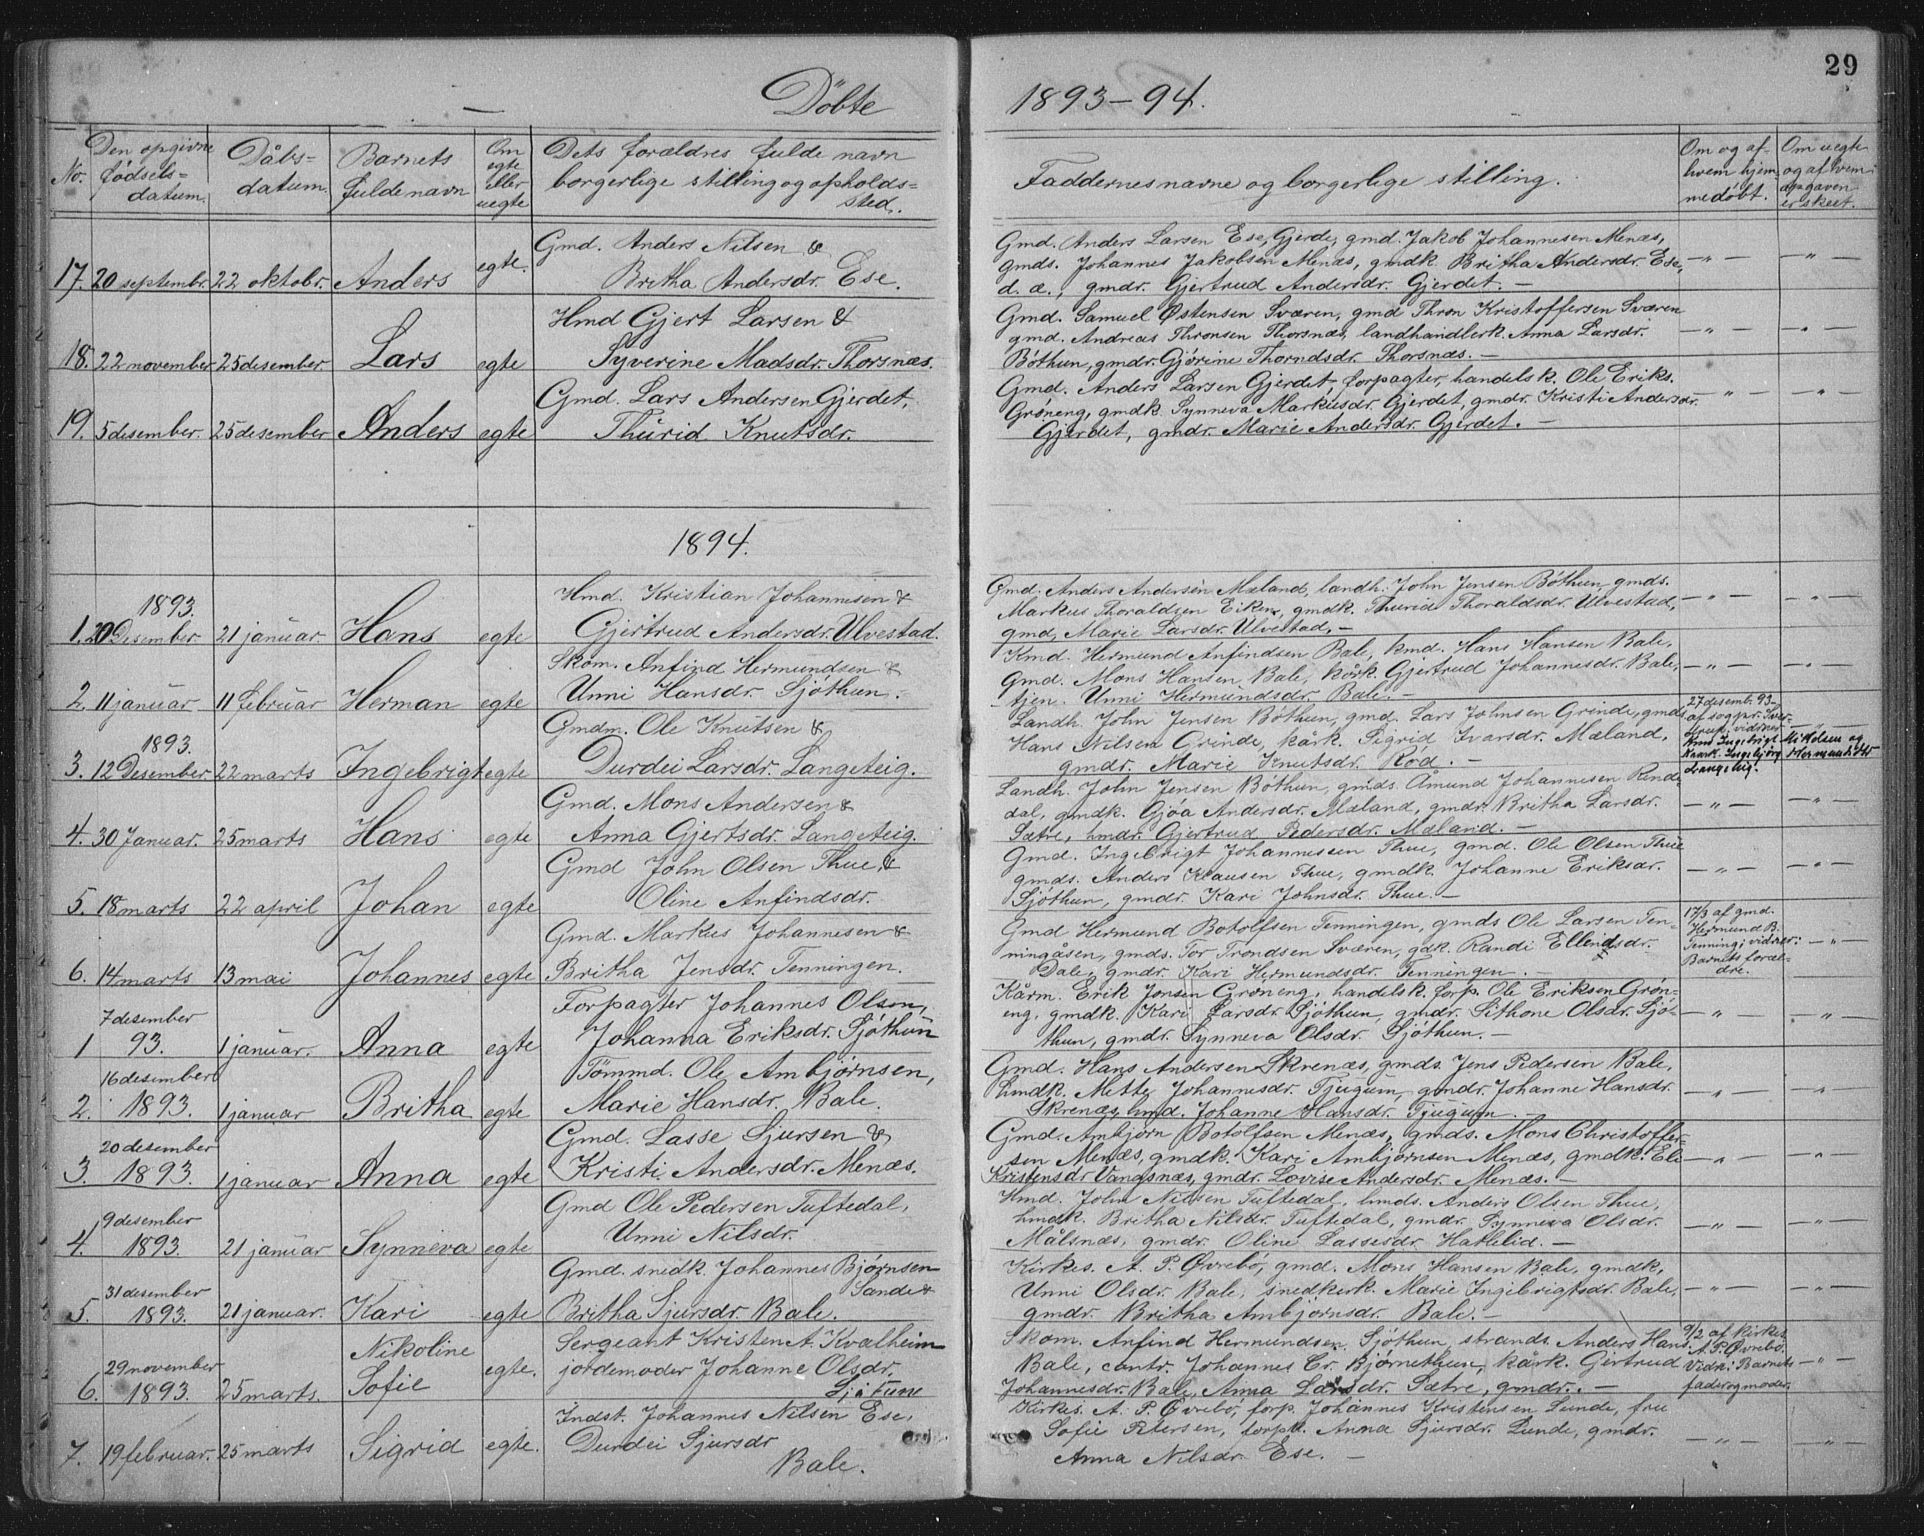 29
Döbte 1893-94.
No. Den opgivne fødsels= datum. Dåbs= datum. Barnets fulde navn Om egte eller uegte Dets forældres fulde navn borgerlige stilling og opholds= sted. Faddernes navne og borgerlige stilling. Om og af hvem hjem medøbt. Om uegte og af hvem opgaven er skeet.
17. 20 septembr. 22 oktobr. Anders egte.
Gmd. Anders Nilsen &
Britha Andersdr. Ese.
Gmd. Anders Larsen Ese, Gjerde, gmd. Jakob Johannesen Menæs,
gmds. Johannes Jakobsen Menæs, gmdk. Britha Andersdr. Ese, — " — — " —
d. æ., gmdr. Gjertrud Andersdr. Gjerdet. —
18. 22 november 25 desember. Lars egte
Hmd Gjert Larsen &
Syverine Madsdr. Thorsnæs.
Gmd. Samuel Østensen Sværen, gmd Thron Kristoffersen Sværen
gmd. Andreas Thronsen Thorsnæs, landhandlerk. Anna Larsdr. — " — — " —
Böthun, gmdr. Gjörine Thorndsdr. Thorsnæs. —
19. 5 desember. 25 desember Anders egte
Gmd. Lars Andersen Gjerdet,
Thurid Knutsdr.
Gmd. Anders Larsen Gjerdet, forpagter, handelsk. Ole Eriks.
Gröneng, gmdk. Synneva Markusdr. Gjerdet, gmdr. Kristi Andersdr. — " — — " —
Gjerdet, gmdr. Marie Andersdr. Gjerdet. —
1894.
1. 1893. 20 Desember 21 januar. Hans egte
Hmd. Kristian Johannesen &
Gjertrud Andersdr. Ulvestad.
Gmd. Anders Andersen Mæland, landh. John Jensen Böthun, gmds.
Markus Thoraldsen Eiken, gmdk. Thurid Thoraldsdr. Ulvestad, — " — — " —
gmd. Marie Larsdr. Ulvestad. —
2. 11 januar 11 februar Herman egte
Skom. Anfind Hermundsen &
Unni Hansdr. Sjöthun.
Kmd. Hermund Anfindsen Bale, kmd. Hans Hansen Bale,
Gmd. Mons Hansen Bale, kårk. Gjertrud Johannesdr. Bale, — " — — " —
tjen. Unni Hermundsdr. Bale. —
3. 1893. 12 Desember 22 marts Ingebrigt egte
Gmdm. Ole Knutsen &
Durdei Larsdr. Langeteig.
Landh. John Jensen Böthun, gmd. Lars Johnsen Grinde, gmds
Hans Nilsen Grinde, kårk. Sigrid Ivarsdr. Mæland,
gmdr. Marie Knutsdr. Röd. —
27 desemb. 93 af sogpr. vidner: Kmd Ingebrigt Mikelsen og Kaark. Ingebjörg Hermundsdtr Langeteig. — " —
4. 30 Januar. 25 marts Hans egte
Gmd. Mons Andersen &
Anna Gjertsdr. Langeteig.
Landh. John Jensen Böthun, gmds. Åmund Johannesen Rende=
dal, gmdk. Gjöa Andersdr. Mæland, gmdr. Britha Larsdr. — " — — " —
Sætre, hmdr. Gjertrud Pedersdr. Mæland. —
5. 18 marts 22 april Johan egte
Gmd John Olsen Thue, &
Oline Anfindsdr.
Gmd. Ingebrigt Johannessen Thue, gmd. Ole Olsen Thue
gmds. Anders Klausen Thue, gmdk. Johanne Eriksdr. — " — — " —
Sjöthun, gmdr. Kari Johnsdr. Thue. —
6. 14 marts 13 mai Johannes egte
Gmd. Markus Johannesen &
Britha Jensdr. Tenningen.
Gmd Hermund Botolfsen Tenningen, gmds Ole Larsen Ten=
ningåsen, gmds. Tor Trondsen Sværen, gdk. Randi Ellendsdr.
Dale, gmdr. Kari Hermundsdr. Tenningen. —
17/3 af gmd. Hermund B. Tenning; vidner: Barnets foræl= dre. — " —
1 7 desember 93. 1 januar. Anna egte
Forpagter Johannes Olsen,
Johanna Eriksdr. Sjöthun
Kårm. Erik Jonsen Gröneng, handelsk. forp. Ole Eriksen Grön=
eng, gmdk. Kari Larsdr Sjöthun, gmdr. Sithone Olsdr. Sjö= — " — — " —
thun, gmdr. Synneva Olsdr. Sjöthun. —
2. 16 desember 1893. 1 januar Britha egte
Tömmd. Ole Ambjörnsen,
Marie Hansdr. Bale.
Gmd. Hans Andersen Skrenæs, gmds. Jens Pedersen Bale,
hmdk. Mette Johannesdr. Tjugum, gmdr. Johanne Hansdr. — " — "
Skrenæs, hmd. Johanne Hansdr. Tjugum. —
3. 20 desember 1893. 1 januar Anna egte
Gmd. Lasse Sjursen &
Kristi Andersdr. Menæs.
Gmd. Ambjörn Botolfsen Menæs, gmds. Mons Christoffer=
sen Menæs, gmdk. Kari Ambjörnsen Menæs, gmdk. Eli — " — — " —
Kristensdr Vangsnæs, gmdr. Lovise Andersdr. Menæs. —
4. 9 desember 1893. 21 januar Synneva egte
Gmd Ole Pedersen Tuftedal,
Unni Nilsdr.
Hmd. John Nilsen Tuftedal, hmds. Anders Olsen Thue,
hmdk. Britha Nilsdr. Tuftedal, gmdr. Synneva Olsdr. — " — — " —
Målsnæs, gmdr. Oline Lassesdr. Hatlelid. —
5. 31 desember 1893. 21 januar. Kari egte
Gmd. snedk. Johannes Björnsen
Sande &
Britha Sjursdr. Bale.
Kirkes. A. P. Övrebö, gmd. Mons Hansen Bale, gmdk,
Unni Olsdr. Bale, snedkerk. Marie Ingebrigtsdr. Bale, — " — — " —
gmdr. Britha Ambjörnsdr. Bale. —
6. 29 november 1893. 25 marts. Nikoline Sofie egte.
Sergeant Kristen A. Kvalheim
jordemoder Johanne Olsdr.
Skom. Anfind Hermundsen Sjöthun, strands. Anders Hans.
Bale, contr. Johannes Cr. Björnethun, kårk. Gertrud
Johannesdr. Bale, Anna Larsdr. Sætre, gmdr. —
9/2 af kirkes. A. P. Övrebö. Vidn: Barnets fader og moder. — " —
7. 19 februar. 25 marts Sigrid egte.
Indst. Johannes Nilsen Ese,
Durdei Sjursdr
Bale.
Kirkes. A. P. Övrebö, forp. Johannes Kristensen Lunde, fru
Sofie Petersen, forpk. Anna Sjursdr. Lunde, gmdr. — " — — " —
Anna Nilsdr. Ese. —